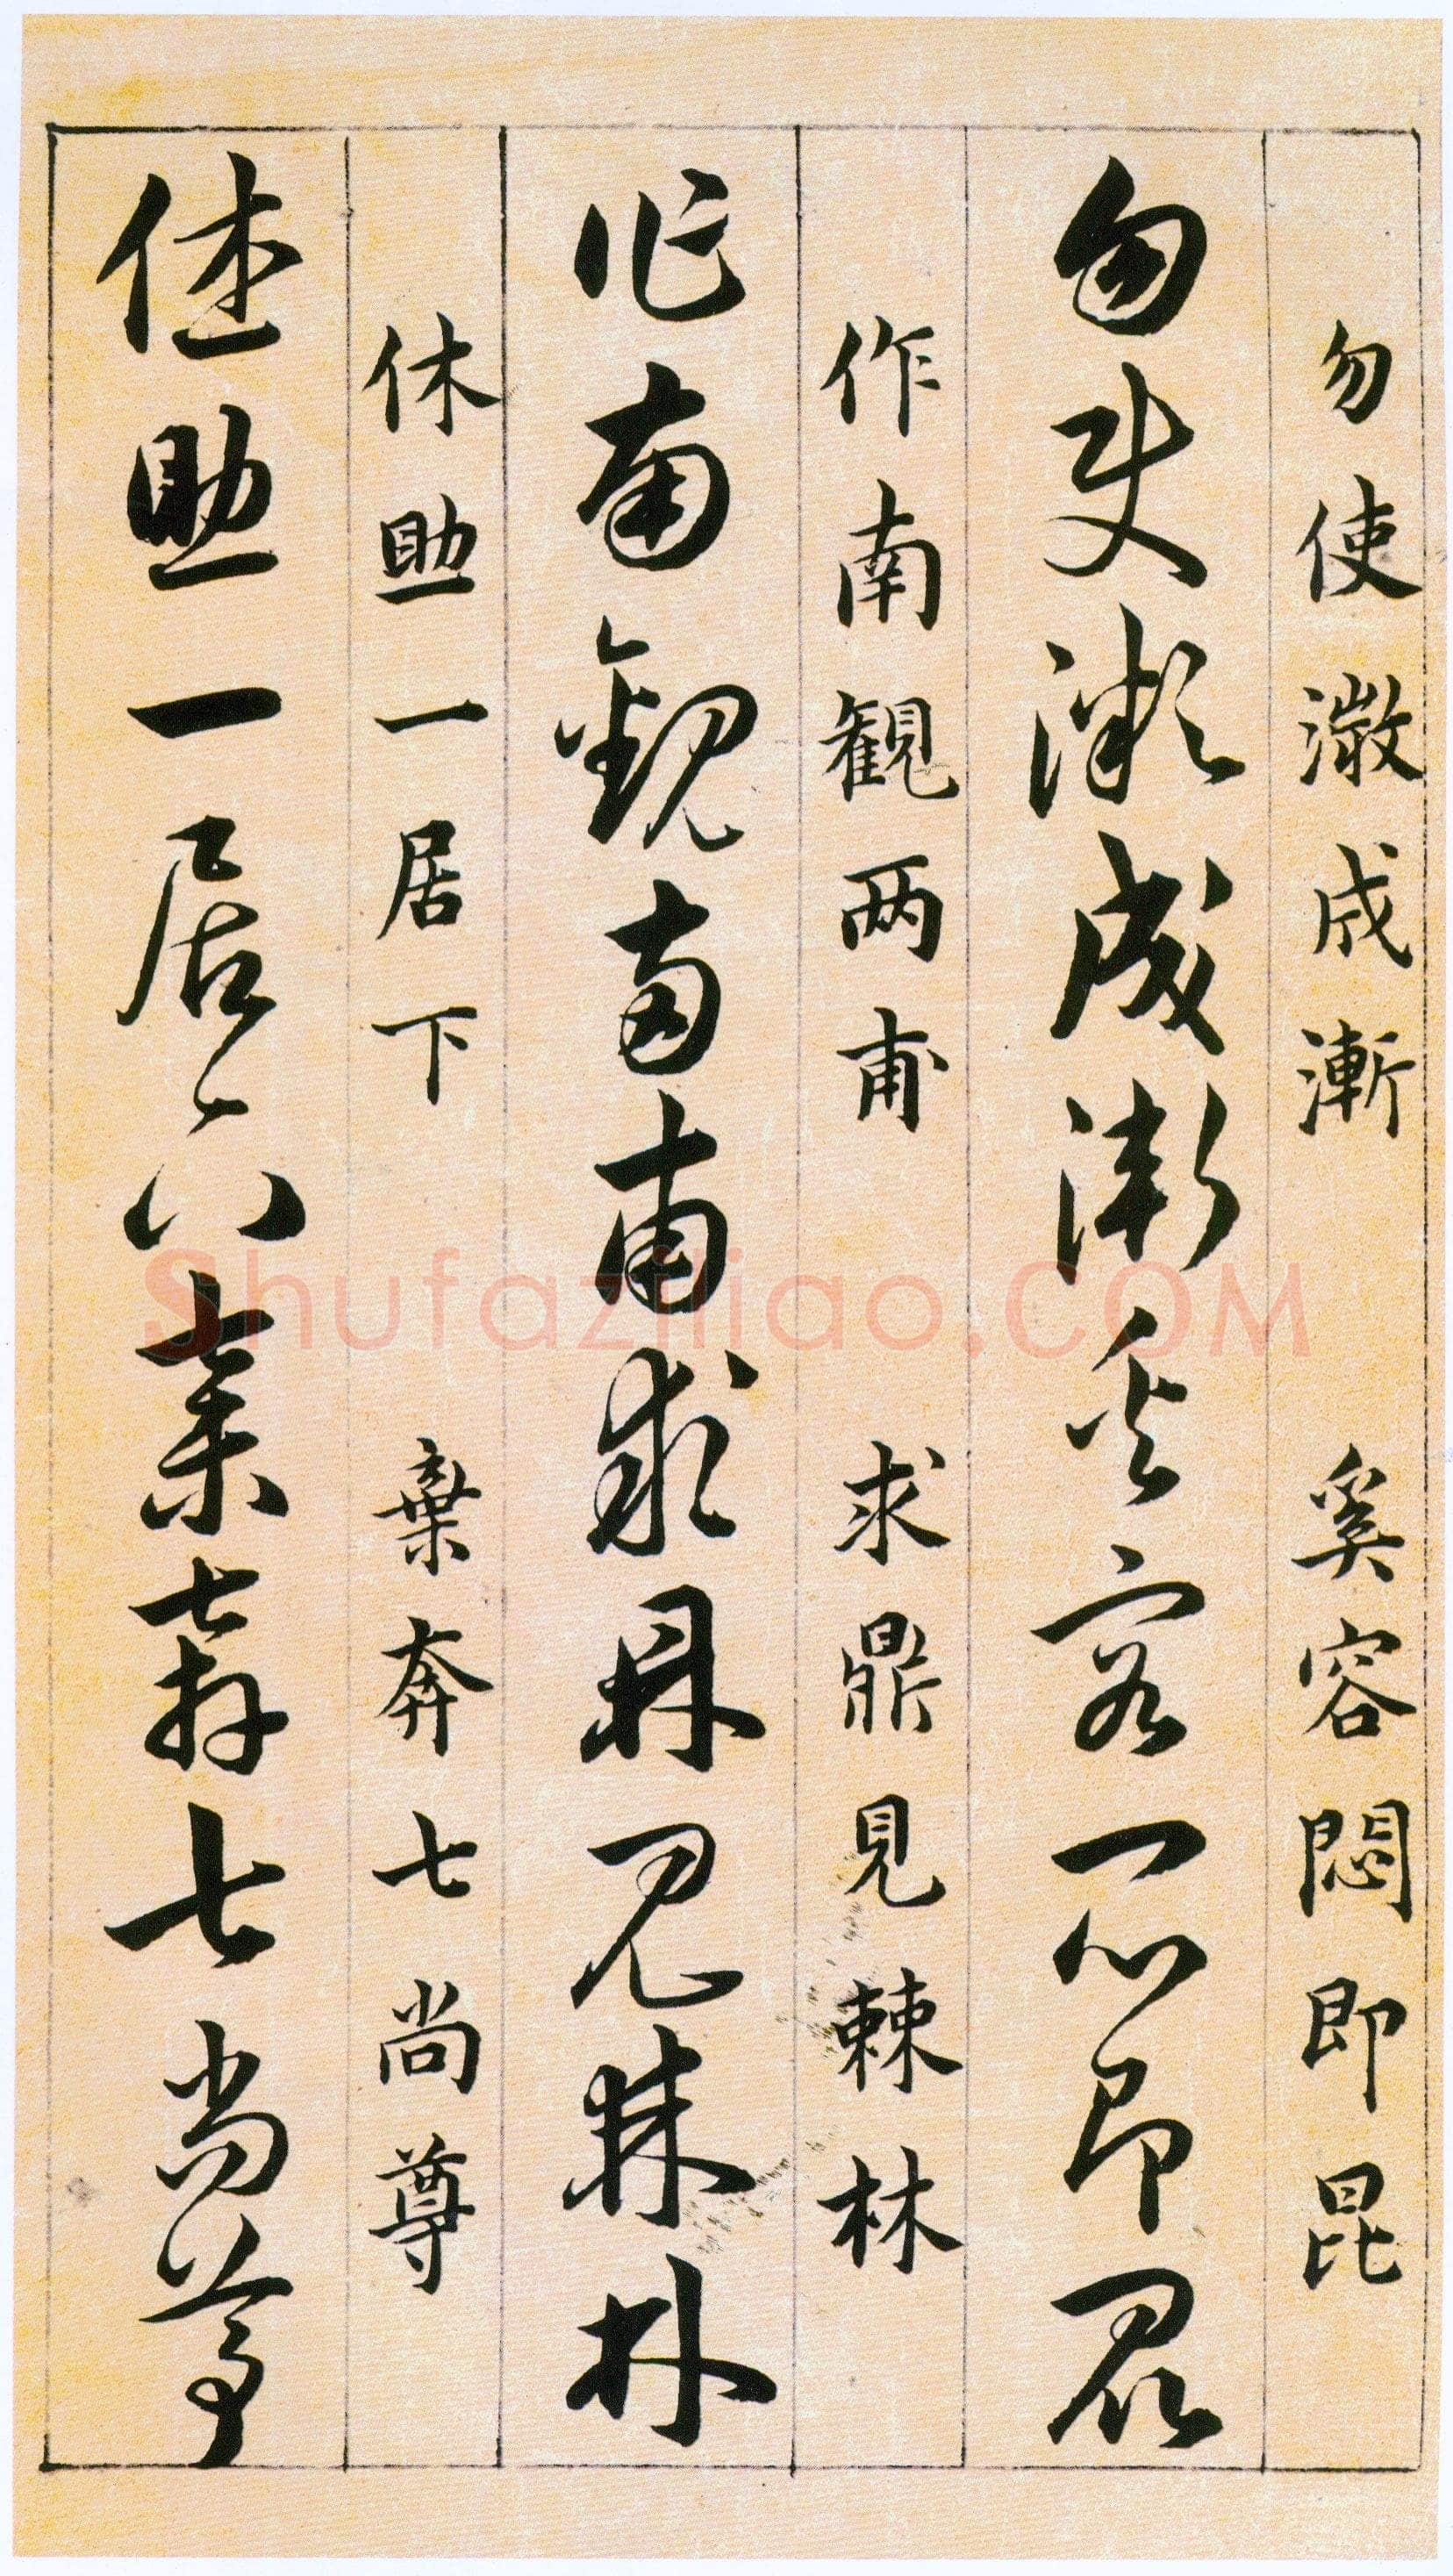 勿使澂成漸 奚容悶即昆
勿使澂成漸奚容悶即昆
作南観两甫 求鼎見棘林
作南観两甫求鼎見棘林
休助一居下 棄奔七尚尊
休助一居下棄奔七尚尊
Shufaziliao.COM